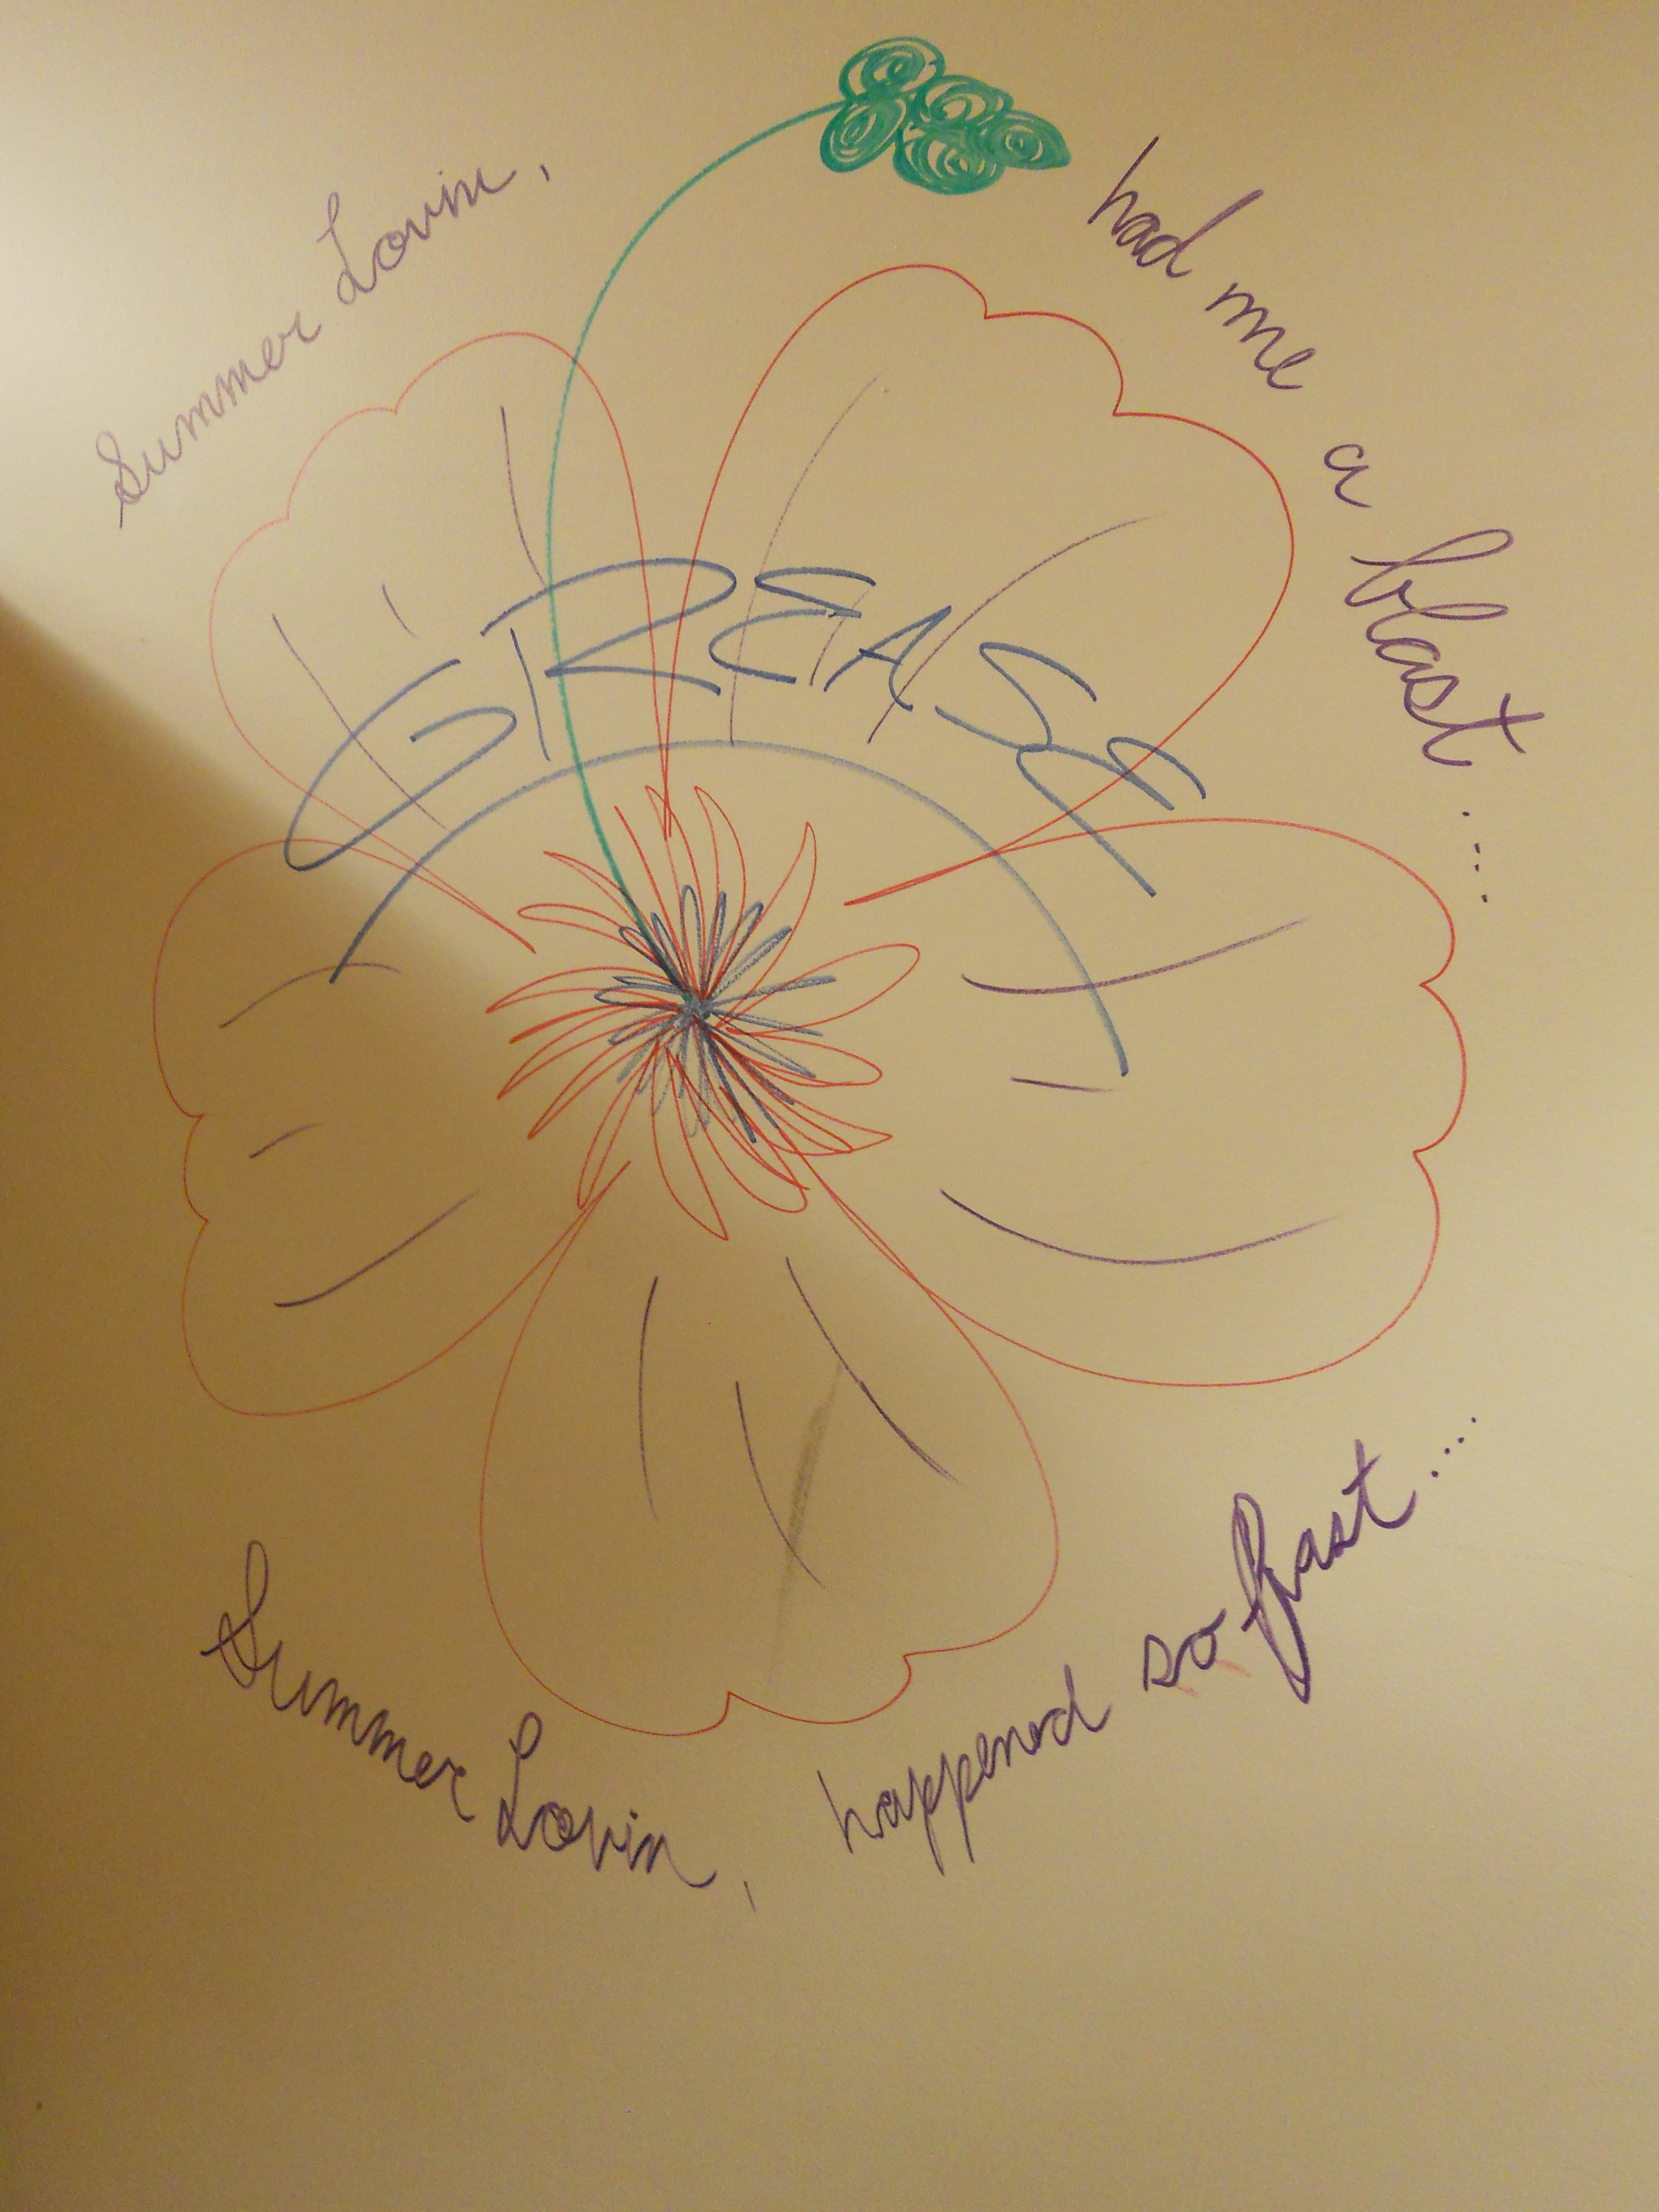 Summer Lovin,
had me a blast....
GREASE
Summer Lovin,
happened so fast....